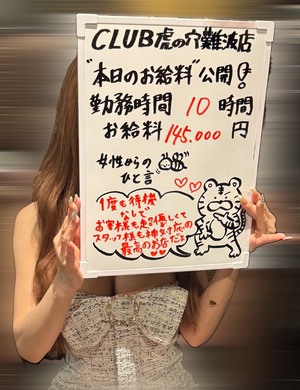 CLUB虎の穴難波店
"本日のお給料"公開!
勤務時間 10時間
お給料 145.000円
女性からの
ひと言
1度も待機
なしで
お客様も超優しくて
スタッフ様も神対応の
最高のお店だよ